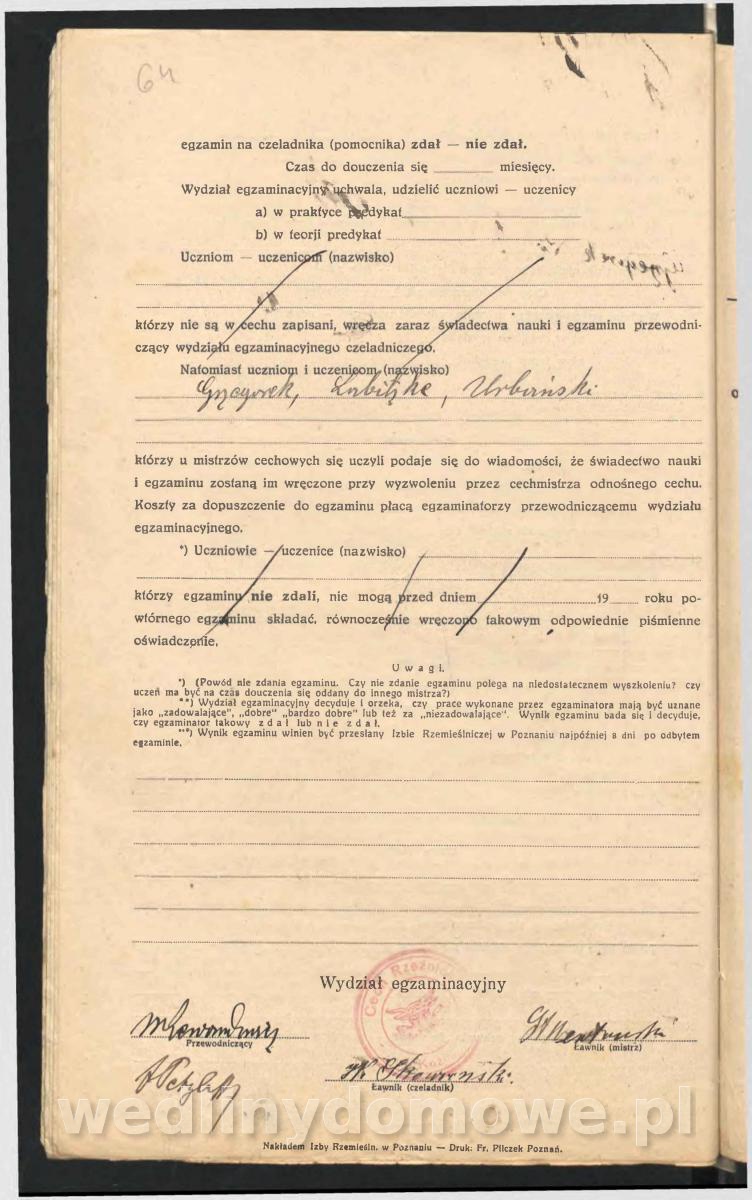 64
egzamin na czeladnika (pomocnika) zdał — nie zdał.
Czas do douczenia się ______ miesięcy.
Wydział egzaminacyjny uchwala, udzielić uczniowi — uczenicy
a) w praktyce predykat
b) w teorji predykat
Uczniom — uczenicom (nazwisko)
którzy nie są w cechu zapisani, wręcza zaraz świadectwa nauki i egzaminu przewodni-
czący wydziału egzaminacyjnego czeladniczego.
Natomiast uczniom i uczenicom (nazwisko)
Grzegorek, Urbański
którzy u mistrzów cechowych się uczyli podaje się do wiadomości, że świadectwo nauki
i egzaminu zostaną im wręczone przy wyzwoleniu przez cechmistrza odnośnego cechu.
Koszty za dopuszczenie do egzaminu płacą egzaminatorzy przewodniczącemu wydziału
egzaminacyjnego.
*) Uczniowie — uczenice (nazwisko)
którzy egzaminu nie zdali, nie mogą przed dniem 19 ___ roku po-
wtórnego egzaminu składać, równocześnie wręczono takowym odpowiednie piśmienne
oświadczenie.
Uwagi.
*) (Powód nie zdania egzaminu. Czy nie zdanie egzaminu polega na niedostatecznem wyszkoleniu? czy
uczeń ma być na czas douczenia się oddany do innego mistrza?)
**) Wydział egzaminacyjny decyduje i orzeka, czy prace wykonane przez egzaminatora mają być uznane
jako „zadowalające", „dobre" „bardzo dobre" lub też za „niezadowalające". Wynik egzaminu bada się i decyduje,
czy egzaminator takowy zdał lub nie zdał.
***) Wynik egzaminu winien być przesłany Izbie Rzemieślniczej w Poznaniu najpóźniej 8 dni po odbytem
egzaminie.
Wydział egzaminacyjny
Cech Rzeźni
Przewodniczący
Ławnik (mistrz)
Ławnik (czeladnik)
wedlinydomowe.pl
Nakładem Izby Rzemieśln. w Poznaniu — Druk: Fr. Pilczek Poznań.